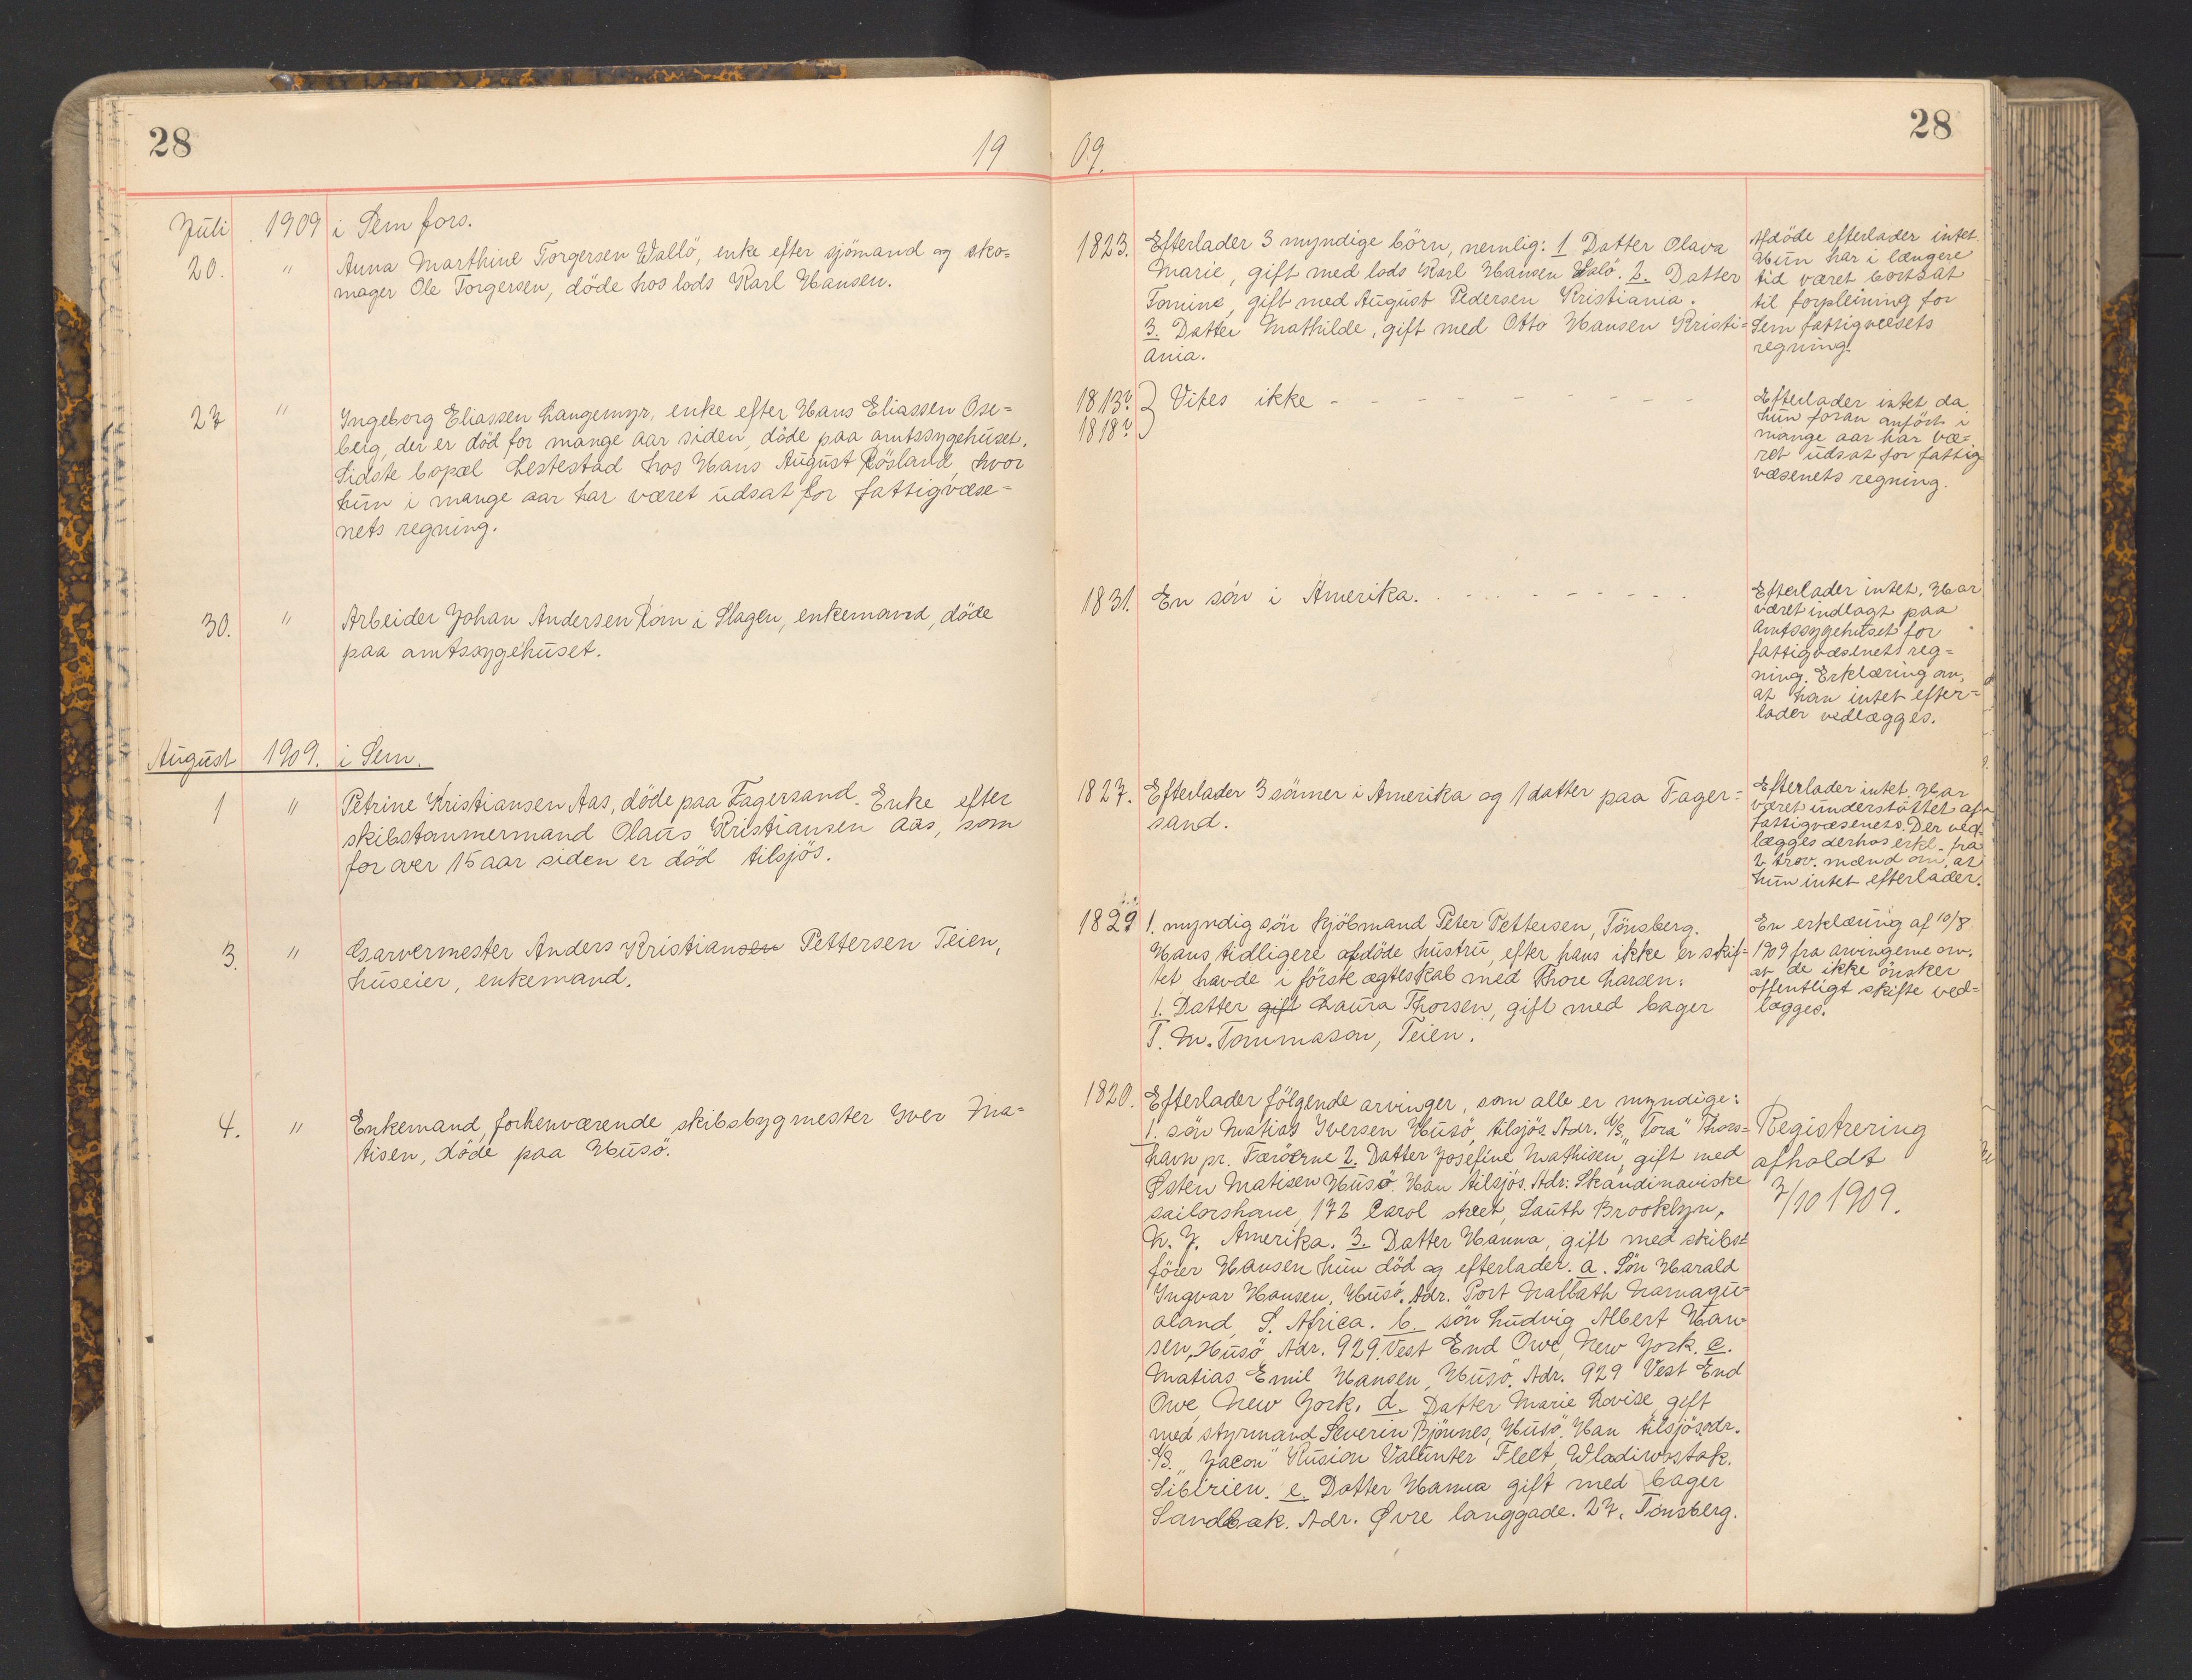 28
19
09.
28
Juli 1909 i Sem fors.
20. " Anna Marthine Torgersen Vallö, enke efter sjömand og sko=
mager Ole Torgersen, döde hos lods Karl Hansen.
1823. Efterlader 3 myndige börn, nemlig: 1 Datter Olava
Marie, gift med lods Karl Hansen Valö. 2. Datter
Tomine, gift med August Pedersen Kristiania.
3. Datter Mathilde, gift med Otto Hansen Kristi=
ania.
Afdöde efterlader intet.
Hun har i længere
tid været bortsat
til forpleining for
Sem fattigvæsets
regning.
27 " Ingeborg Eliassen Langemyr, enke efter Hans Eliassen Ose=
berg, der er död for mange aar siden, döde paa amtssygehuset.
Sidste bopæl Lestestad hos Hans August Rösland, hvor
hun i mange aar har været udsat for fattigvæse=
nets regning.
1813? } Vites ikke - - - - - - - - -
1818?
Efterlader intet da
hun foran anfört i
mange aar har væ=
ret udsat for fattig
væsenets regning.
30. " Arbeider Johan Andersen Rom i Slagen, enkemand, döde
paa amtssygehuset.
1831. En sön i Amerika. - - - - - - - -
Efterlader intet. Har
været indlagt paa
Amtssygehuset for
fattigvæsenets reg=
ning. Erklæring om,
at han intet efter=
lader vedlægges.
August 1909. i Sem.
1 " Petrine Kristiansen Aas, döde paa Fagersand. Enke efter
skibstømmermand Olaus Kristiansen Aas, som
for over 15 aar siden er död tilsjös.
1827. Efterlader 3 sönner i Amerika og 1 datter paa Fager=
sand.
Efterlader intet. Har
været understöttet af
fattigvæsenets. Der ved=
lægges derhos erkl. fra
2 trov. mænd om, at
hun intet efterlader.
3. " Garvermester Anders Kristiansen Pettersen Teien,
huseier, enkemand.
1829 1. myndig sön kjöbmand Peter Pettersen, Tönsberg.
Hans tidligere afdöde hustru, efter hans ikke er skif=
tet, havde i förste ægteskab med Thore Larsen:
1. Datter gift Laura Thorsen, gift med bager
T. M. Tommason, Teien.
En erklæring af 10/8
1909 fra arvingerne om,
at de ikke önsker
offentligt skifte ved=
lægges.
4. " Enkemand, forhenværende skibsbygmester Iver Ma=
tisen, döde paa Husö.
1820. Efterlader fölgende arvinger, som alle er myndige:
1. sön Matias Iversen Husö, tilsjös Adr. D/S. "Tora" Thors=
havn pr. Færöerne 2. Datter Josefine Mathisen, gift med
Østen Matisen Husö. Han tilsjös. Adr: Skandinaviske
sailorshome, 172 Carol street, South Brooklyn,
N. Y. Amerika. 3. Datter Hanna, gift med skibs=
förer Hansen hun död og efterlader. a. Sön Harald
Ingvar Hansen, Husö. Adr. Port Nallath Namaqu=
aland, S. Africa. b. sön Ludvig Albert Han=
sen, Husö, Adr. 929. Vest End Owe, New York. c.
Matias Emil Hansen, Husö. Adr. 929 Vest End
Owe New York. d. Datter Marie Lovise, gift
med styrmand Severin Björnnes, Husö. Han tilsjös. Adr.
D/S. "Jacon" Rusion Valunter Fleet, Wladiwostok.
Sibirien. e. Datter Hanna gift med bager
Sandbak. Adr. Øvre langgade. 27. Tönsberg.
Registrering
afholdt
7/10 1909.